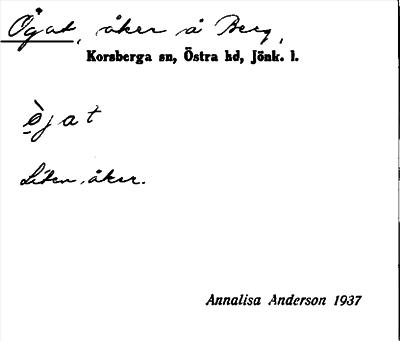 Ögat, åker å Berg,
Korsberga sn, Östra hd, Jönk. l.
ö̀jat
Liten åker.
Annalisa Anderson 1937